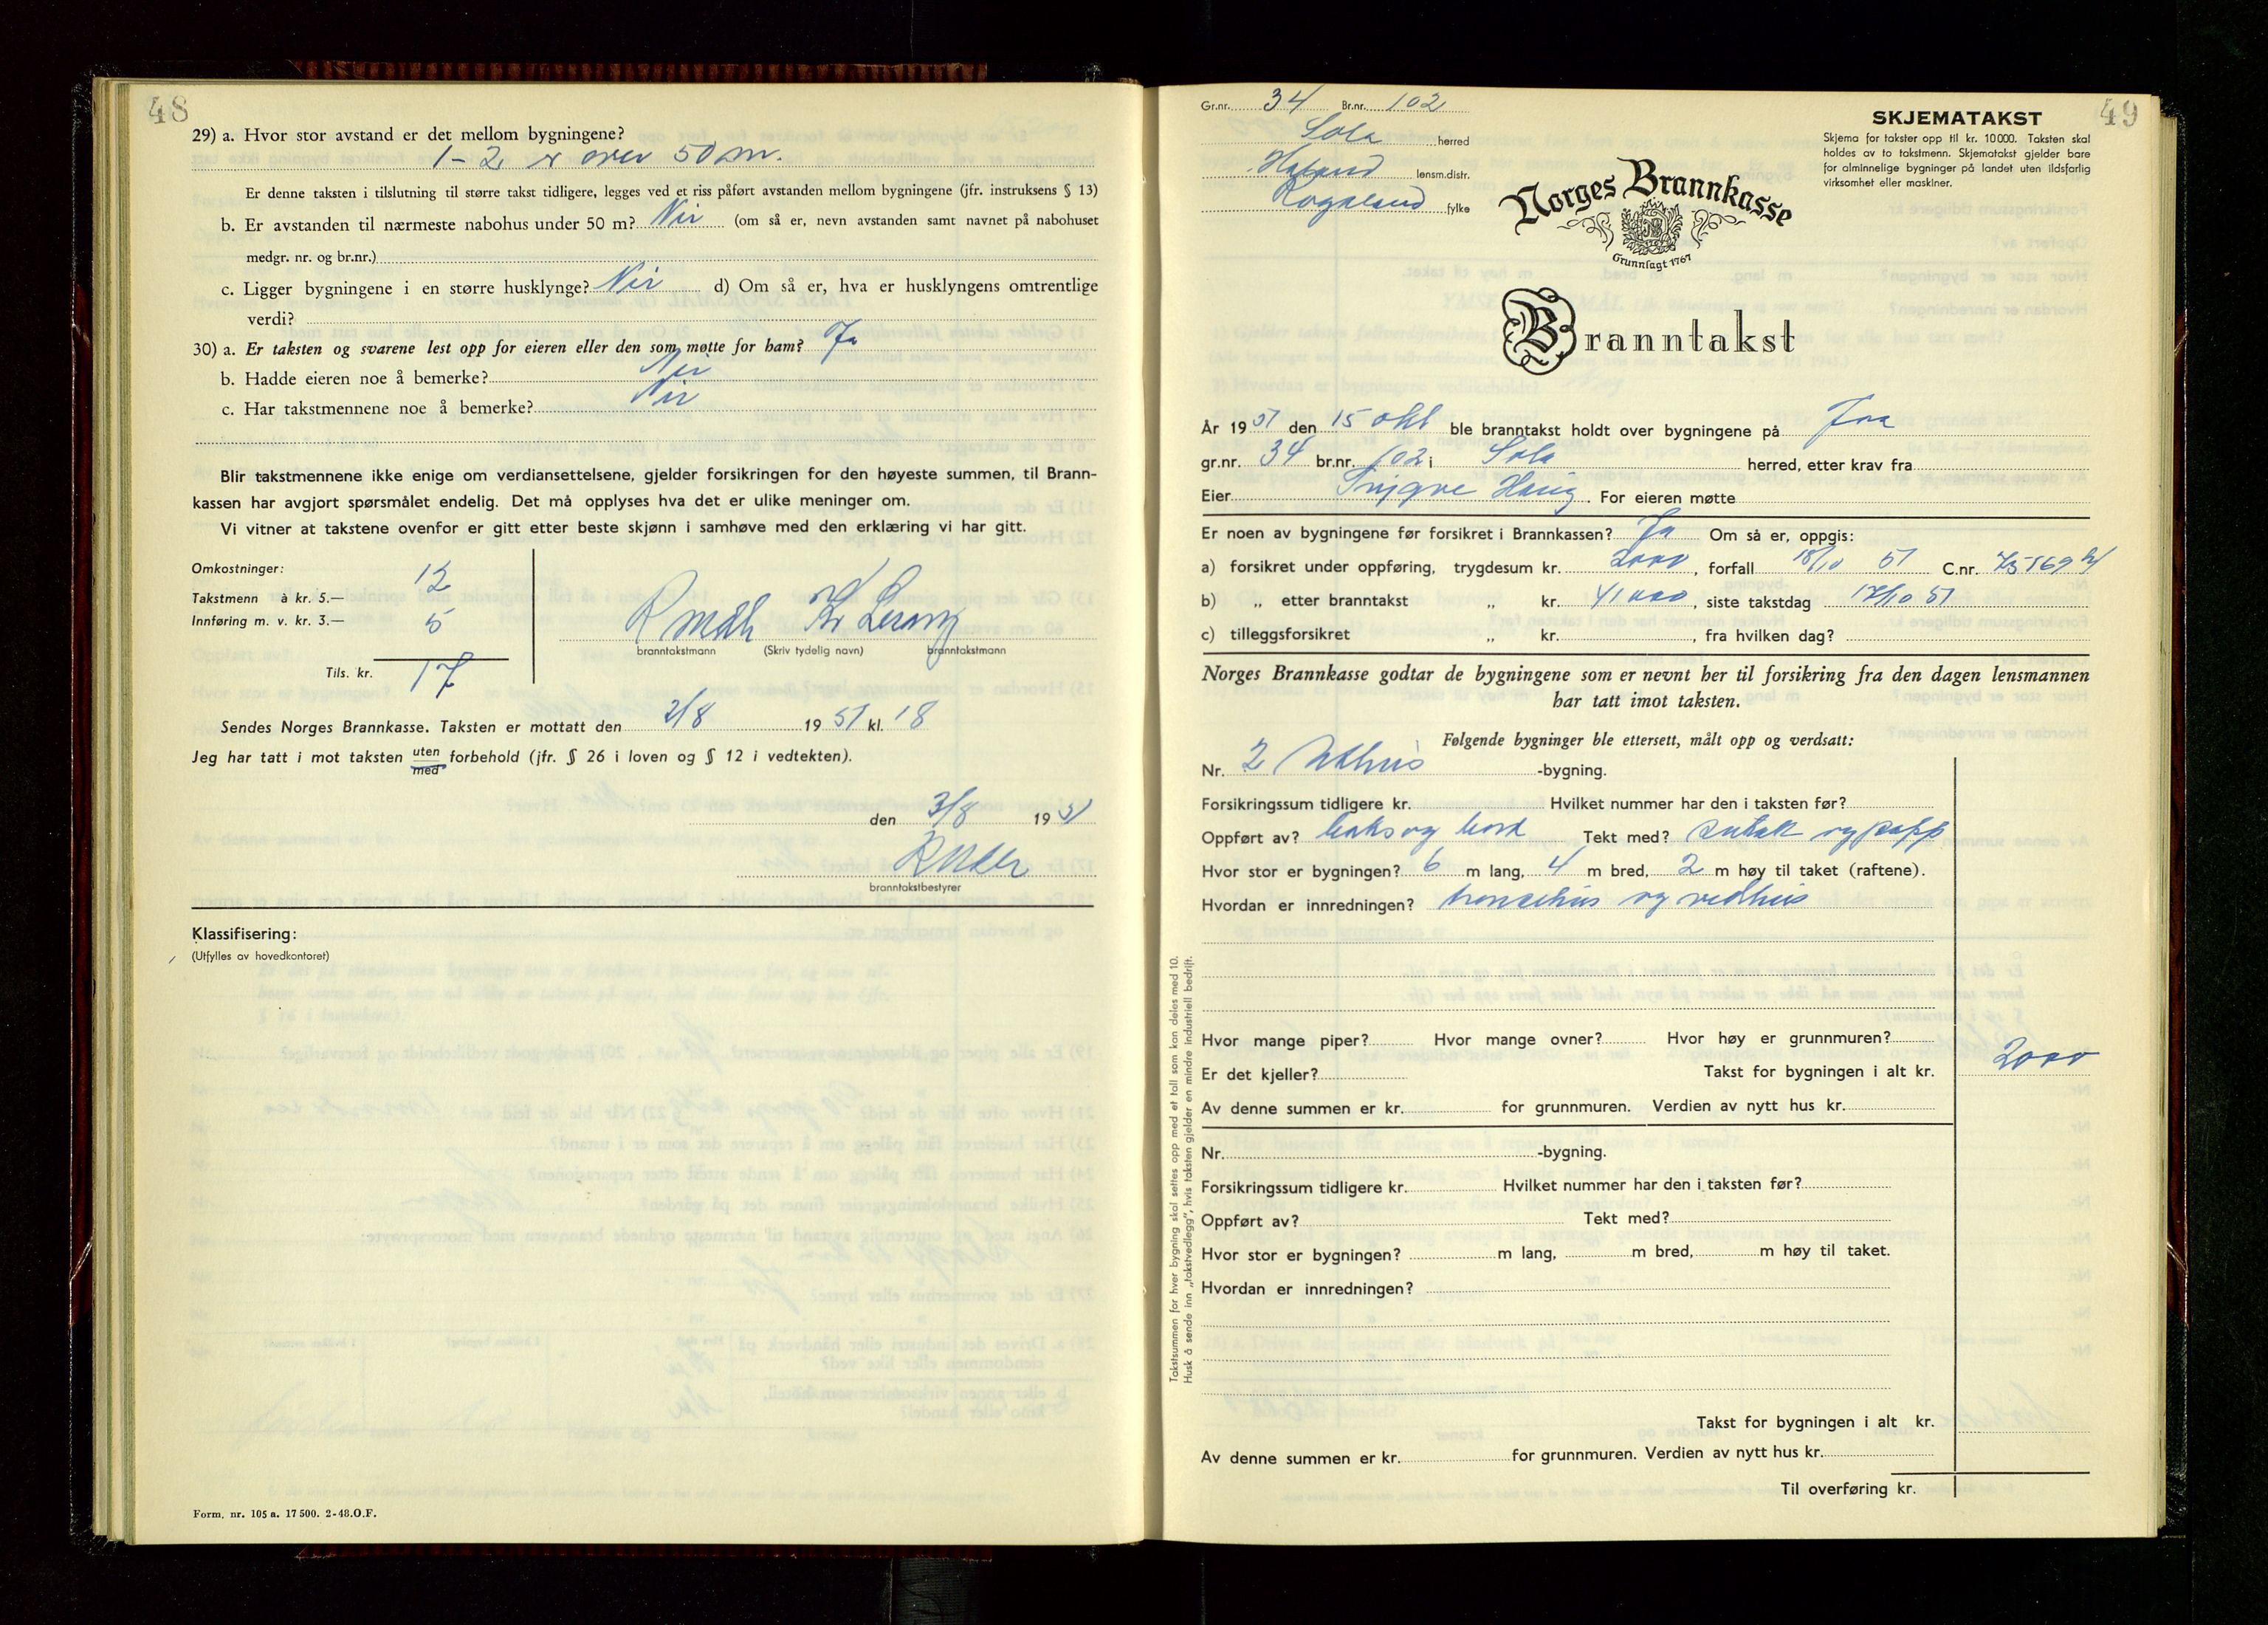 48
29) a. Hvor stor avstand er det mellom bygningene?
1 - 2 er over 50 m.
Er denne taksten i tilslutning til større takst tidligere, legges ved et riss påført avstanden mellom bygningene (jfr. instruksens § 13)
b. Er avstanden til nærmeste nabohus under 50 m? Nei (om så er, nevn avstanden samt navnet på nabohuset
medgr. nr. og br.nr.)
c. Ligger bygningene i en større husklynge? Nei d) Om så er, hva er husklyngens omtrentlige
verdi?
30) a. Er taksten og svarene lest opp for eieren eller den som møtte for ham? Ja
b. Hadde eieren noe å bemerke? Nei
c. Har takstmennene noe å bemerke? Nei
Blir takstmennene ikke enige om verdiansettelsene, gjelder forsikringen for den høyeste summen, til Brann-
kassen har avgjort spørsmålet endelig. Det må opplyses hva det er ulike meninger om.
Vi vitner at takstene ovenfor er gitt etter beste skjønn i samhøve med den erklæring vi har gitt.
Omkostninger:
Takstmenn à kr. 5.— 12
Innføring m. v. kr. 3.— 5
Tils. kr. 17
branntakstmann (Skriv tydelig navn) branntakstmann
Sendes Norges Brannkasse. Taksten er mottatt den 2/8 19 51 kl. 18
Jeg har tatt i mot taksten uten
med forbehold (jfr. § 26 i loven og § 12 i vedtekten).
den 3/8 19 51
branntakstbestyrer
Klassifisering:
(Utfylles av hovedkontoret)
Form. nr. 105 a. 17 500. 2-48. O.F.
49
Gr.nr. 34 Br.nr. 102
Sola herred
Haaland lensm.distr.
Rogaland fylke
SKJEMATAKST
Skjema for takster opp til kr. 10000. Taksten skal
holdes av to takstmenn. Skjematakst gjelder bare
for alminnelige bygninger på landet uten ildsfarlig
virksomhet eller maskiner.
Norges Brannkasse
Grunnlagt 1767
Branntakst
År 19 51 den 15 okt ble branntakst holdt over bygningene på
gr.nr. 34 br.nr. 102 i Sola herred, etter krav fra
Eier Trygve Haug. For eieren møtte
Er noen av bygningene før forsikret i Brannkassen? Ja Om så er, oppgis:
a) forsikret under oppføring, trygdesum kr. 2000, forfall 18/10 51 C.nr.
b) „ etter branntakst „ kr. 41000, siste takstdag 17/10 51
c) tilleggsforsikret „ kr. , fra hvilken dag?
Norges Brannkasse godtar de bygningene som er nevnt her til forsikring fra den dagen lensmannen
har tatt imot taksten.
Følgende bygninger ble ettersett, målt opp og verdsatt:
Nr. 2 Uthus -bygning.
Forsikringssum tidligere kr. Hvilket nummer har den i taksten før?
Oppført av? og bord Tekt med? og papp
Hvor stor er bygningen? 6 m lang, 4 m bred, 2 m høy til taket (raftene).
Hvordan er innredningen? hønsehus og vedhus
Hvor mange piper? Hvor mange ovner? Hvor høy er grunnmuren?
Er det kjeller? Takst for bygningen i alt kr. 2000
Av denne summen er kr. for grunnmuren. Verdien av nytt hus kr.
Nr. -bygning.
Forsikringssum tidligere kr. Hvilket nummer har den i taksten før?
Oppført av? Tekt med?
Hvor stor er bygningen? m lang, m bred, m høy til taket.
Hvordan er innredningen?
Takst for bygningen i alt kr.
Av denne summen er kr. for grunnmuren. Verdien av nytt hus kr.
Til overføring kr.
Takstsummen for hver bygning skal settes opp med et tall som kan deles med 10.
Husk å sende inn „takstvedlegg", hvis taksten gjelder en mindre industriell bedrift.